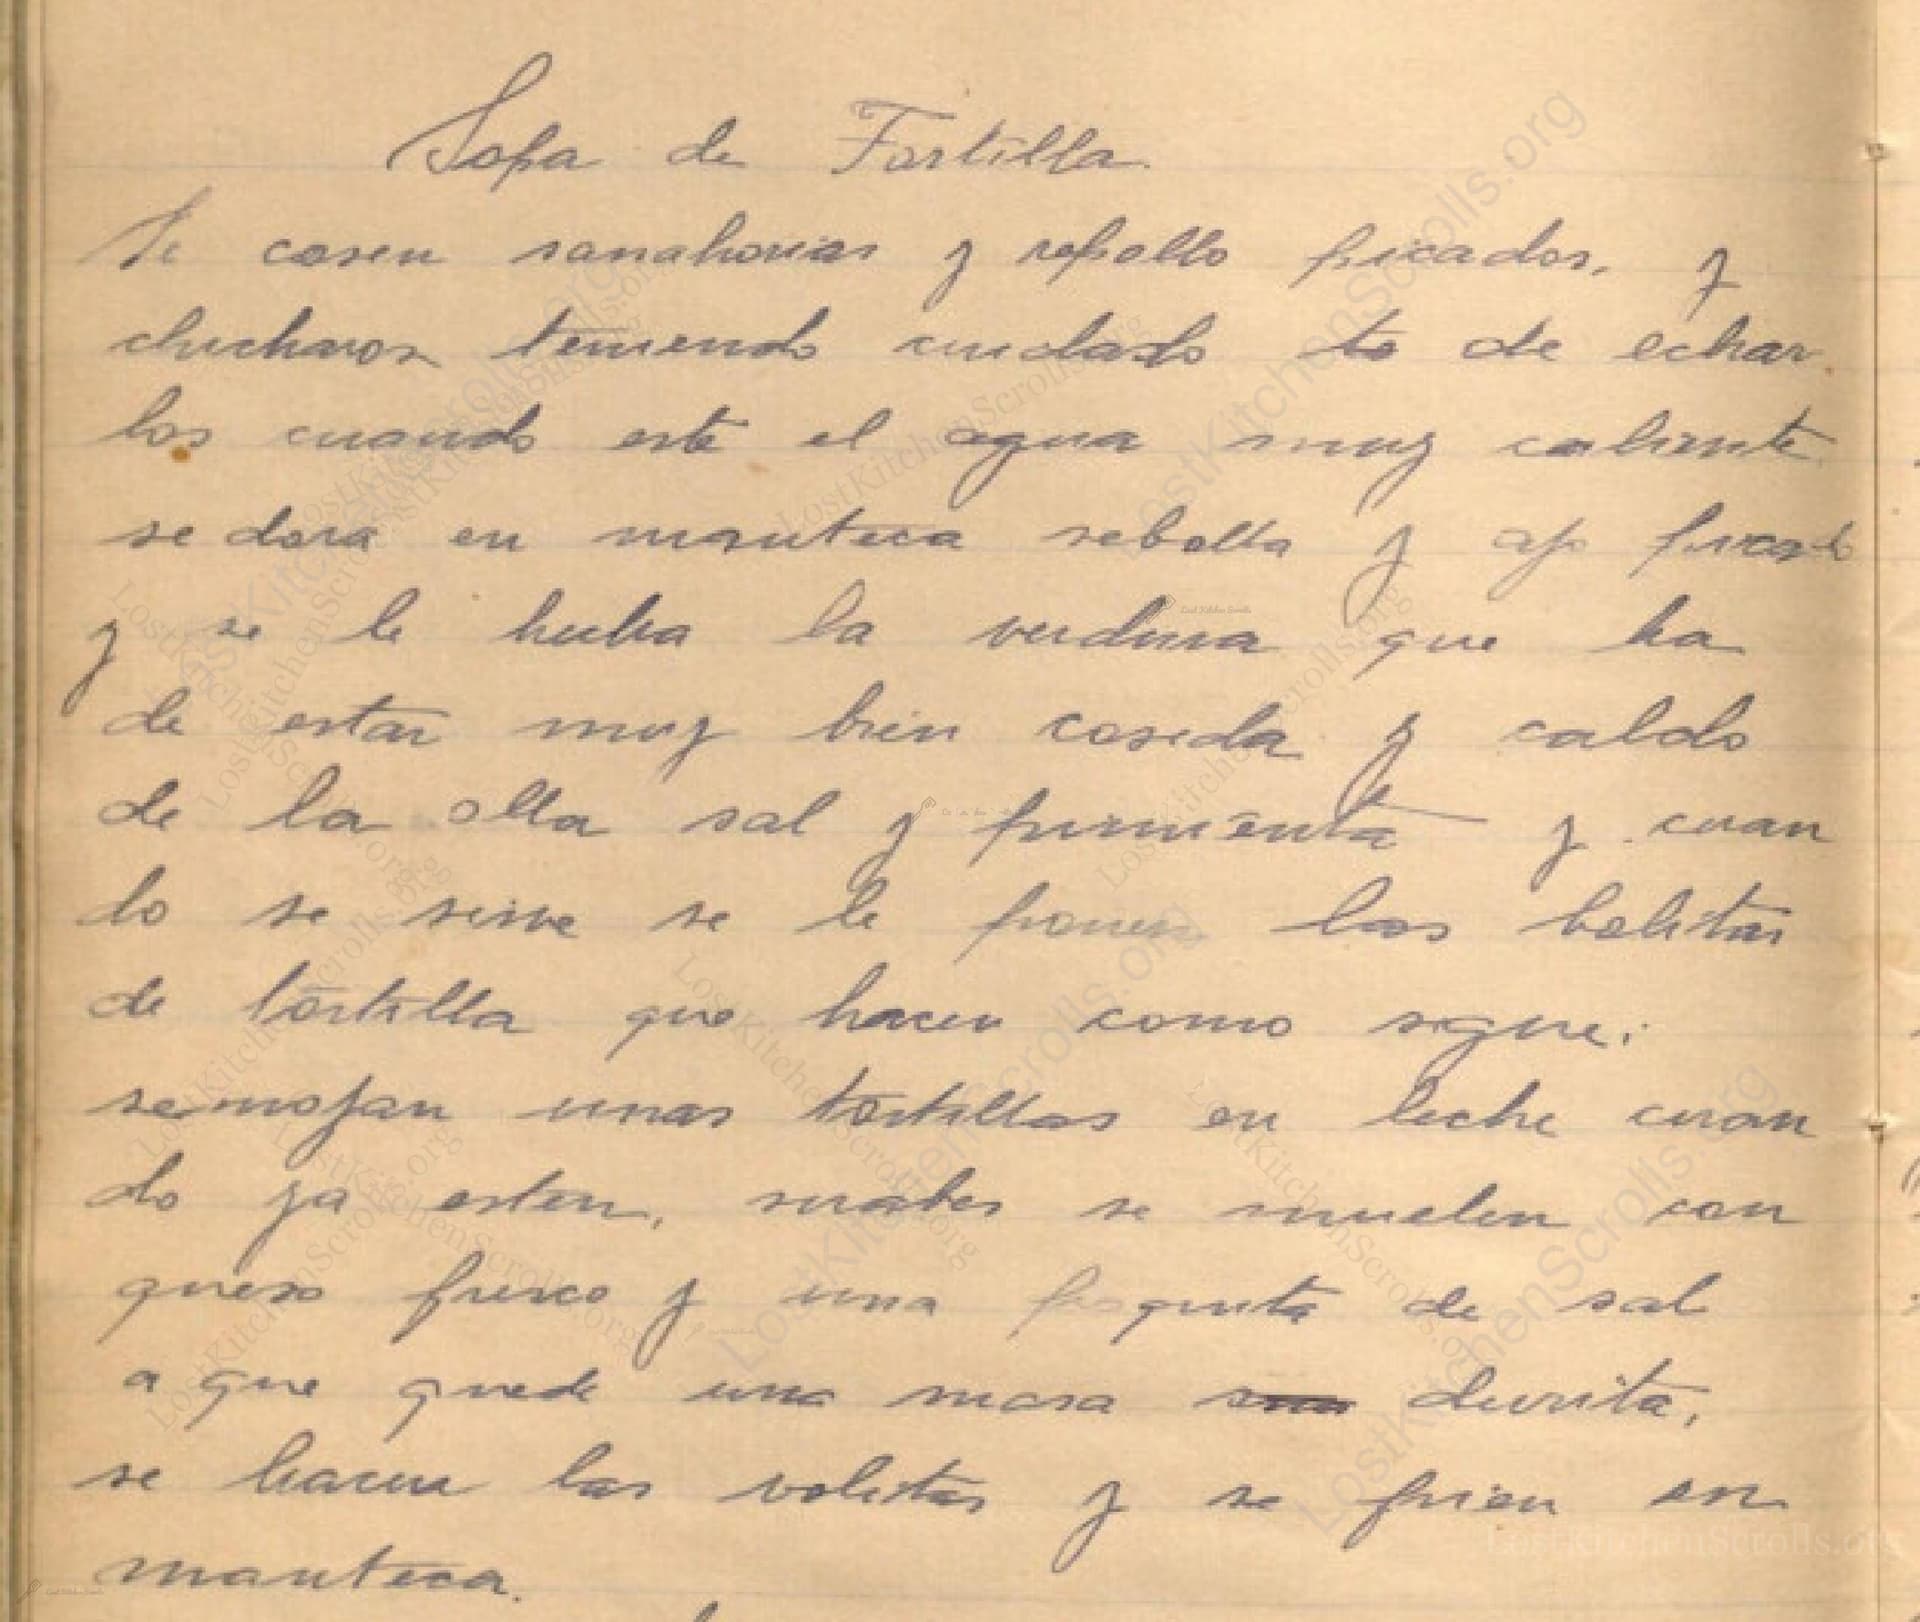 Sopa de Tortilla.
Se cosen sanahorias y repollo picados, y
chicharos teniendo cuidado de echar
los cuando esté el agua muy caliente
se dora en manteca sebolla y ajo picado
y se le hecha la verdura que ha
de estar muy bien coseda y caldo
de la olla sal y pimienta y cuan
do se sirve se le ponen las bolitas
de tortilla que hacen como sigue:
se mojan unas tortillas en leche cuan
do ya esten, suabes se muelen con
queso fresco y una poquita de sal
a que quede una masa durita,
se hacen las volitas y se frien en
manteca.
LostKitchenScrolls.org